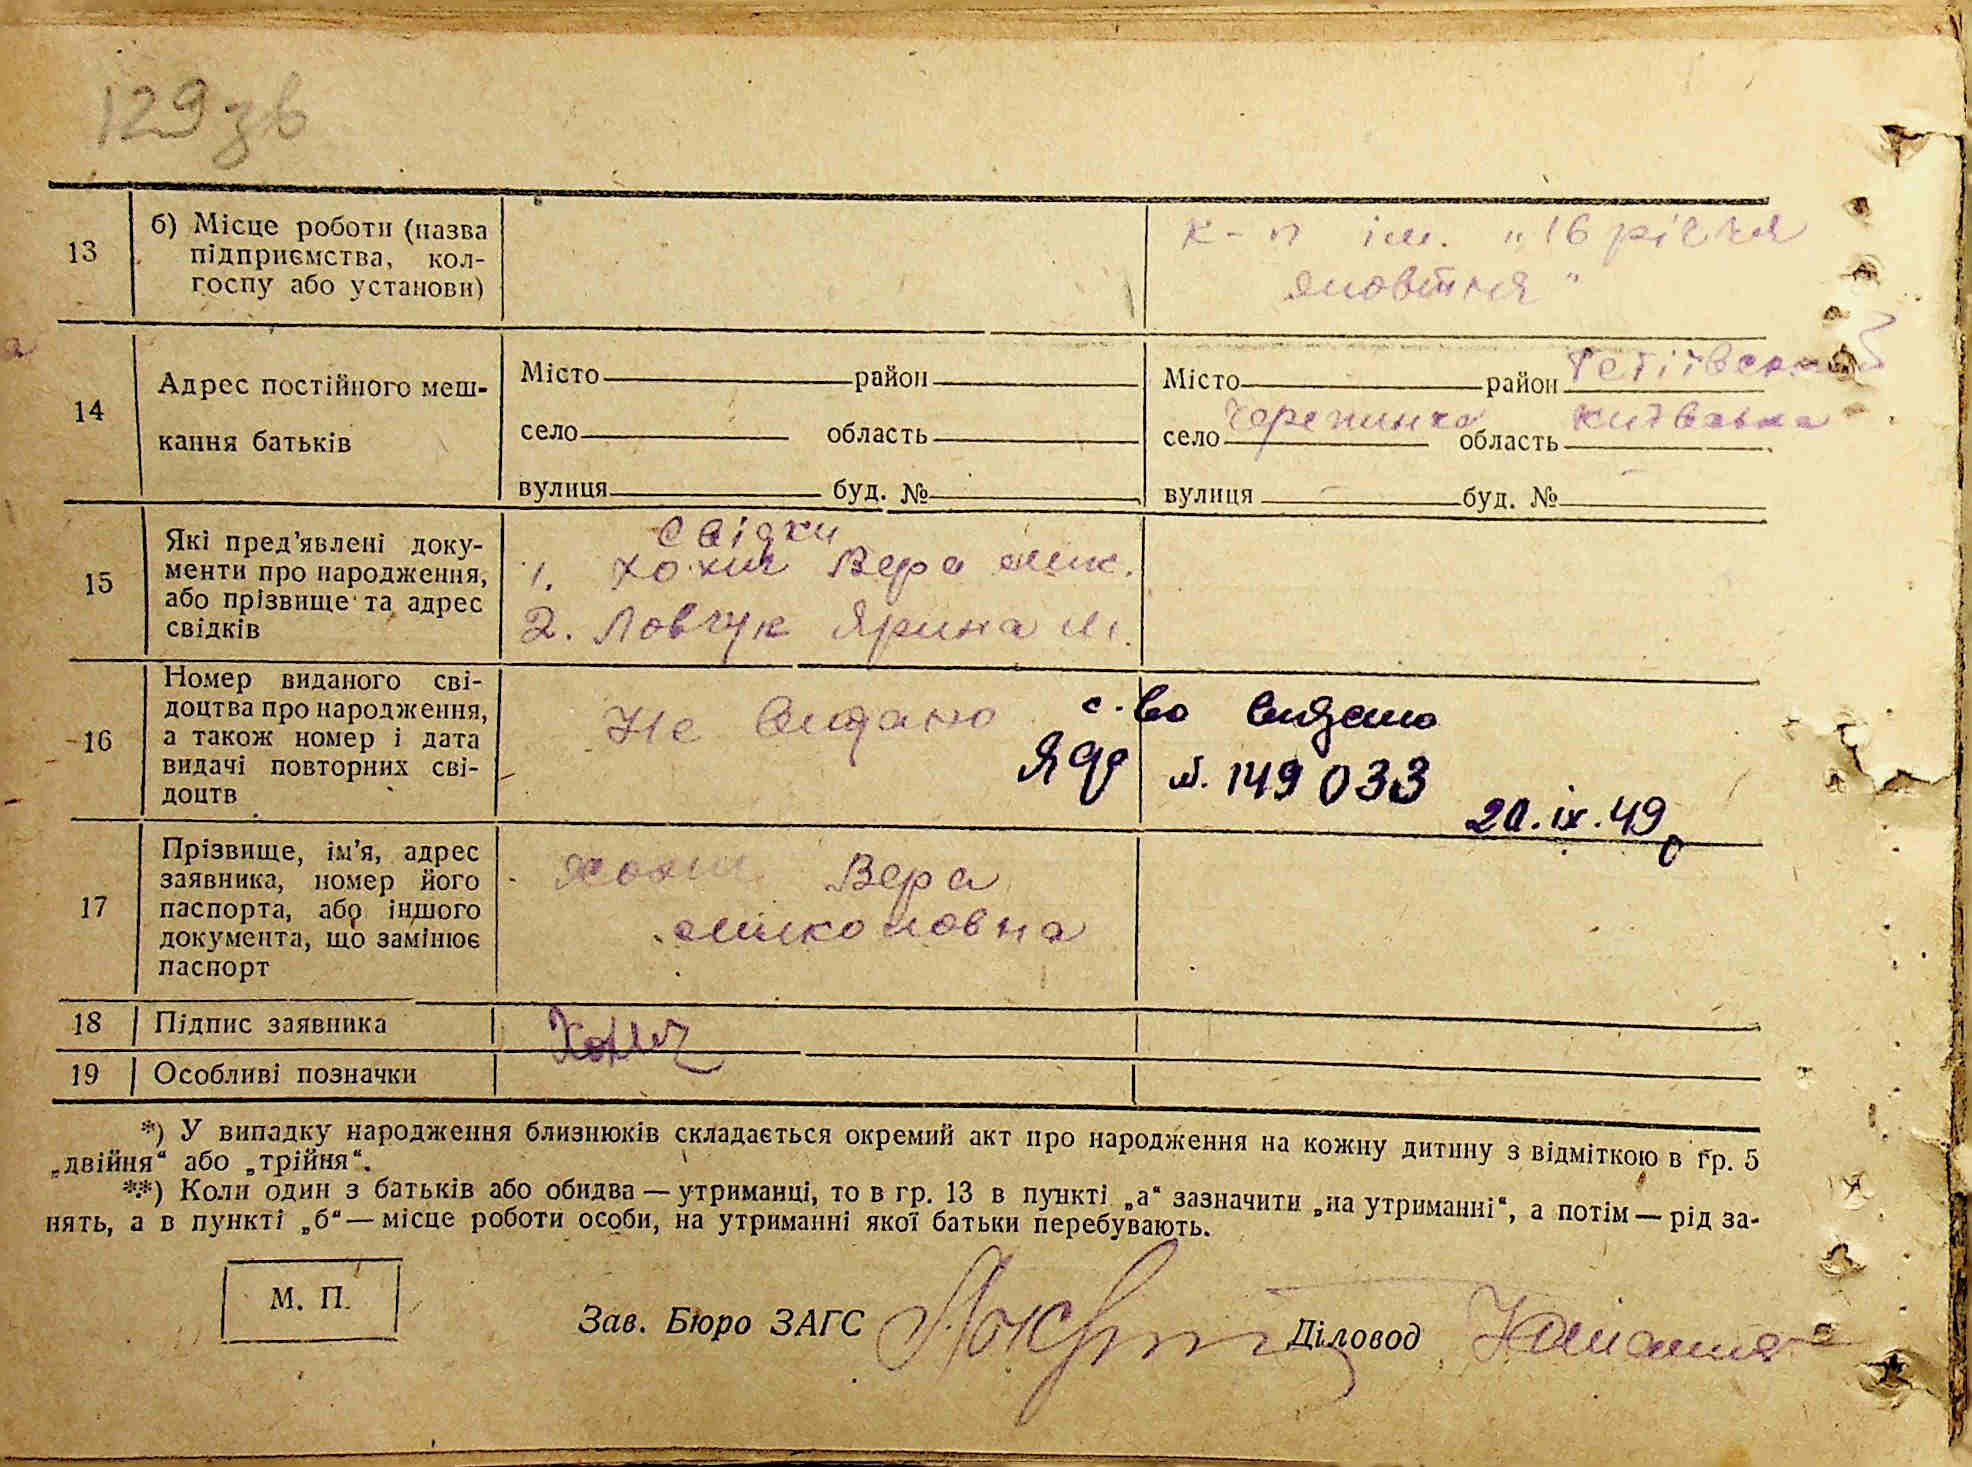 129 зв
13
б) Місце роботи (назва
підприємства, кол-
госпу або установи)
к-п ім. "16 річчя
жовтня"
14
Адрес постійного меш-
кання батьків
Місто район
село область
вулиця буд. №
Місто район Тетіївський
село Черепинка область Київська
вулиця буд. №
15
Які пред'явлені доку-
менти про народження,
або прізвище та адрес
свідків
Свідки
1. Хохич Вера Мик.
2. Ловчук Ярина М.
16
Номер виданого сві-
доцтва про народження,
а також номер і дата
видачі повторних сві-
доцтв
Не видано
с-во видано
№. 149033
20.ІХ.49
17
Прізвище, ім'я, адрес
заявника, номер його
паспорта, або іншого
документа, що замінює
паспорт
Вера
18 Підпис заявника
19 Особливі позначки
*) У випадку народження близнюків складається окремий акт про народження на кожну дитину з відміткою в гр. 5
„двійня“ або „трійня“.
**) Коли один з батьків або обидва — утриманці, то в гр. 13 в пункті „а“ зазначити „на утриманні“, а потім — рід за-
нять, а в пункті „б“ — місце роботи особи, на утриманні якої батьки перебувають.
М. П.
Зав. Бюро ЗАГС
Діловод